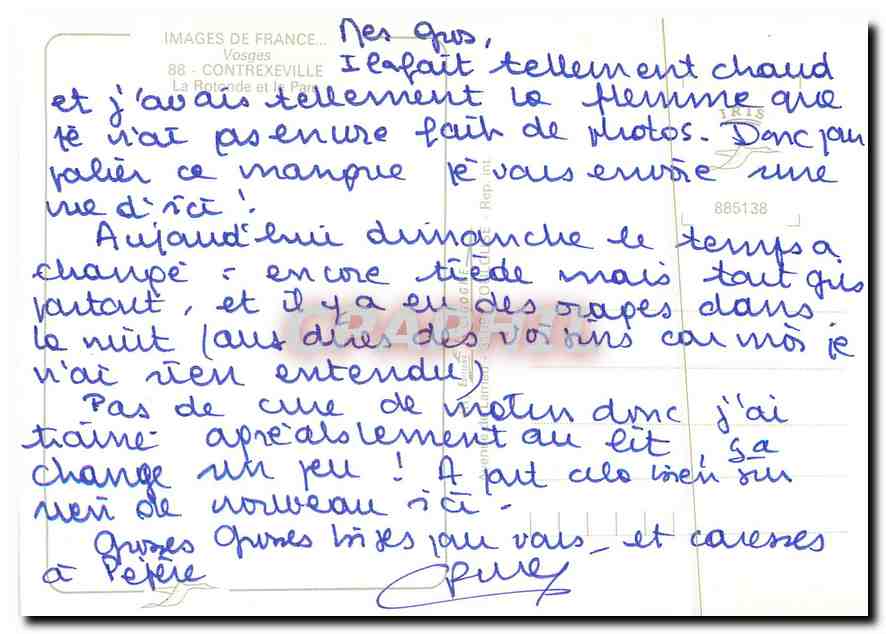 IMAGES DE FRANCE...
Vosges
88 - CONTREXEVILLE
La Rotonde et le Parc
IRIS
885138
Mes gros,
Il a fait tellement chaud
et j'avais tellement la flemme que
je n'ai pas encore fait de photos. Donc pour
palier ce manque je vous envoie une
vue d'ici !
Aujourd'hui dimanche le temps a
changé - encore tiède mais tout gris
partout, et il y a eu des orages dans
la nuit (aux dires des voisins car moi je
n'ai rien entendu)
Pas de cure de matin donc j'ai
traîné au lit, ça
change un peu ! A part cela bien sur
rien de nouveau ici -
Grosses Grosses bises pour vous - et caresses
à Pépère